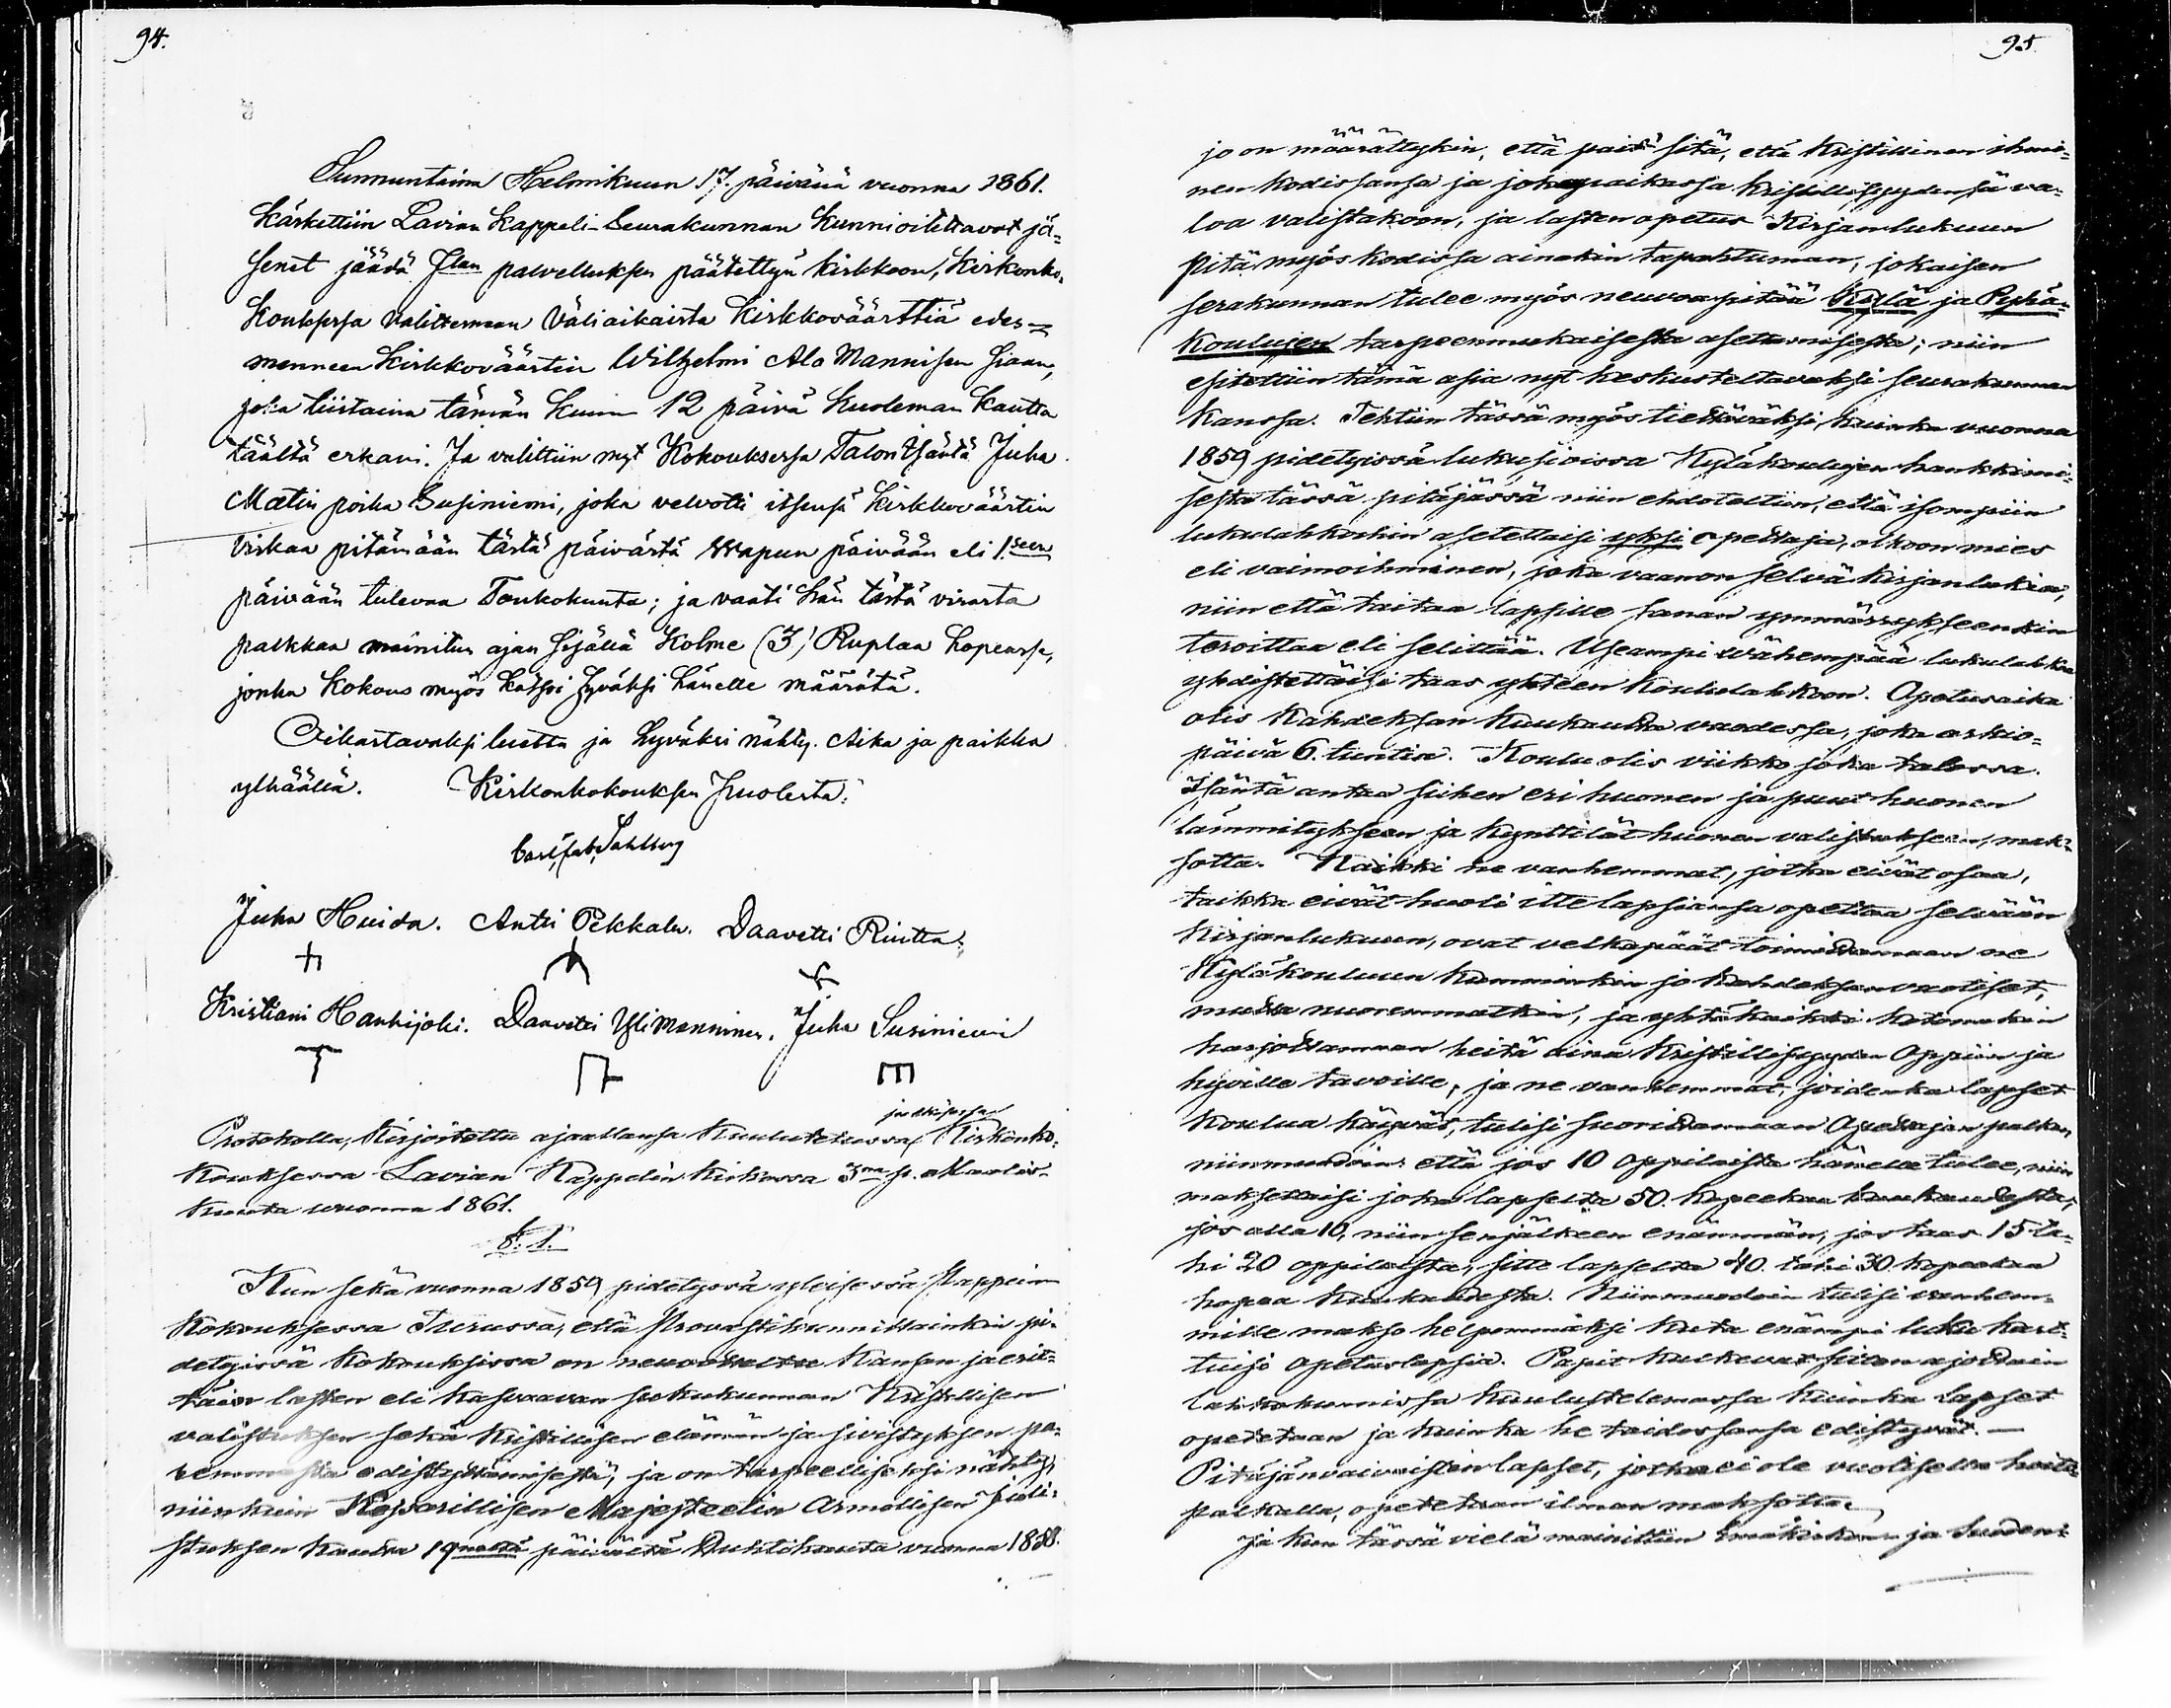 94.
Sunnuntaina Helmikuun 17. päivänä vuonna 1861.
Kärkettiin Lavian Kappeli-Seurakunnan Kunnioitettavat jä-
senet jäädä Jlan palvelluksen päätettyä kirkkoon, Kirkonko-
Kouksessa Valitteman Väliaikaista Kirkkoväärttiä edes-
menneen Kirkkoväärtin Wilhelmi Ala Mannisen siaan,
joka tiistaina tämän Kuun 12 päivä Kuoleman Kautta
täältä erkani. Ja valittiin nyt Kokouksessa Talon Isäntä Juha
Matin poika Susiniemi, joka velvotti itsensä Kirkkoväärtin
Virkaa pitämään tästä päivästä Wapun päivään eli 1.seen
päivään tulevaa Toukokuuta; ja vaati hän tästä virasta
palkkaa mainitun ajan sisällä Kolme (3) Ruplaa hopeassa,
jonka Kokous myös Katsoi hyväksi hänelle määrätä.
Oikastavaksi luettu ja hyväksi nähty. Aika ja paikka
ylhäällä. Kirkonkokouksen puolesta:
Carl Fab. Sahlberg
Juha Huida. Antti Pekkala. Daavetti Riutta.
Kristiani Hankijoki. Daavetti Yli Manninen. Juha Susiniemi
ja
Protokolla, Kirjoitettu ajaallansa Kuulutetussa, Kirkonko-
Kouksessa Lavian Kappelin Kirkossa 3na p. Maalis-
kuuta vuonna 1861.
§. 1.
Kun sekä vuonna 1859 pidetyssä yleisessä Pappein
Kokouksessa Turussa, että Provastikunnittainkin pi-
detyissä Kokouksissa on neuvoteltu Kansan ja erit-
täin lasten eli Kasvavan sukukunnan Kristillisen
valistuksen sekä Kristillisen elämän ja sivistyksen pa-
remmasta edistyttämisestä, ja on tarpeelliseksi nähty,
niinkuin Keisarillisen Majesteetin Armollisen Juli-
stuksen kautta 19nestä päivästä Huhtikuuta vuonna 1858.
95.
jo on määrättykin, että paitsi sitä, että Kristillinen ihmi-
nen kodissansa ja joka paikassa kristillisyydensä va-
loa valistakoon, ja lasten opetus Kirjanlukuun
pitä myös kodissa ainakin tapahtuman, jokaisen
serakunnan tulee myös neuvoa pitää Kylä ja Pyhä-
Koulujen tarpeenmukaisesta asettamisesta; niin
esitettiin tämä asia nyt keskusteltavaksi seurakunnan
kanssa. Tehtiin tässä myös tiettäväksi, kuinka vuonna
1859 pidetyissä lukusioissa Kyläkoulujen hankkimi-
sesta tässä pitäjässä niin ehdoteltiin, että isompiin
lukulahkoihin asetettaisi yksi opettaja, olkoon mies
eli vaimoihminen, joka vaan on selvä kirjanlukia,
niin että taitaa lapsille sanan ymmärrykseenkin
teroittaa eli selittää. Useampi wähempää lukulahkoa
yhdistettäisi taas yhteen Koululahkoon. Opetusaika
olis Kahdeksan Kuukautta vuodessa, joka arkio-
päivä 6. tuntia. Koulu olis viikko joka talossa.
Isäntä antaa siihen eri huonen ja puut huonen
lämmitykseen ja Kynttilät huonen valistukseen, mak-
sotta. Kaikki ne vanhemmat, jotka eivät osaa,
taikka eivät huoli itte lapsiansa opettaa selvään
Kirjanlukuun, ovat velkapäät toimittamaan ne
Kyläkouluun kumminkin jo kahdeksanvuotiset,
mutta nuoremmatkin, ja yhtä kaikki kotonakin
harjottamaan heitä aina Kristillisyyden Oppiin ja
hyville tavoille, ja ne vanhemmat, joidenka lapset
koulua käyvät, tulisi suorittamaan Opettajan palkan
niinmuodoin että jos 10 oppilaista hänelle tulee, niin
maksettaisi joka lapselta 50. kopeekaa kuukaudesta,
jos alla 10, niin senjälkeen enämmän, jos taas 15 ta-
hi 20 oppilaista, sitte lapselta 40. tahi 30 kopeekaa
hopea Kuukaudesta. Niinmuodoin tulisi vanhem-
mille makso helpommaksi kuta enämpi luku kart-
tuisi opetuslapsia. Papit kulkevat sillon ajottain
lukukunnissa kuulustelemassa kuinka lapset
opetetaan ja kuinka he taidossansa edistyvät. —
Pitäjänvaivaisten lapset, jotka ei ole vuotisella hoito
palkalla, opetetaan ilman maksotta.
Ja kun tässä vielä mainittiin Emäkirkon ja Suoden-